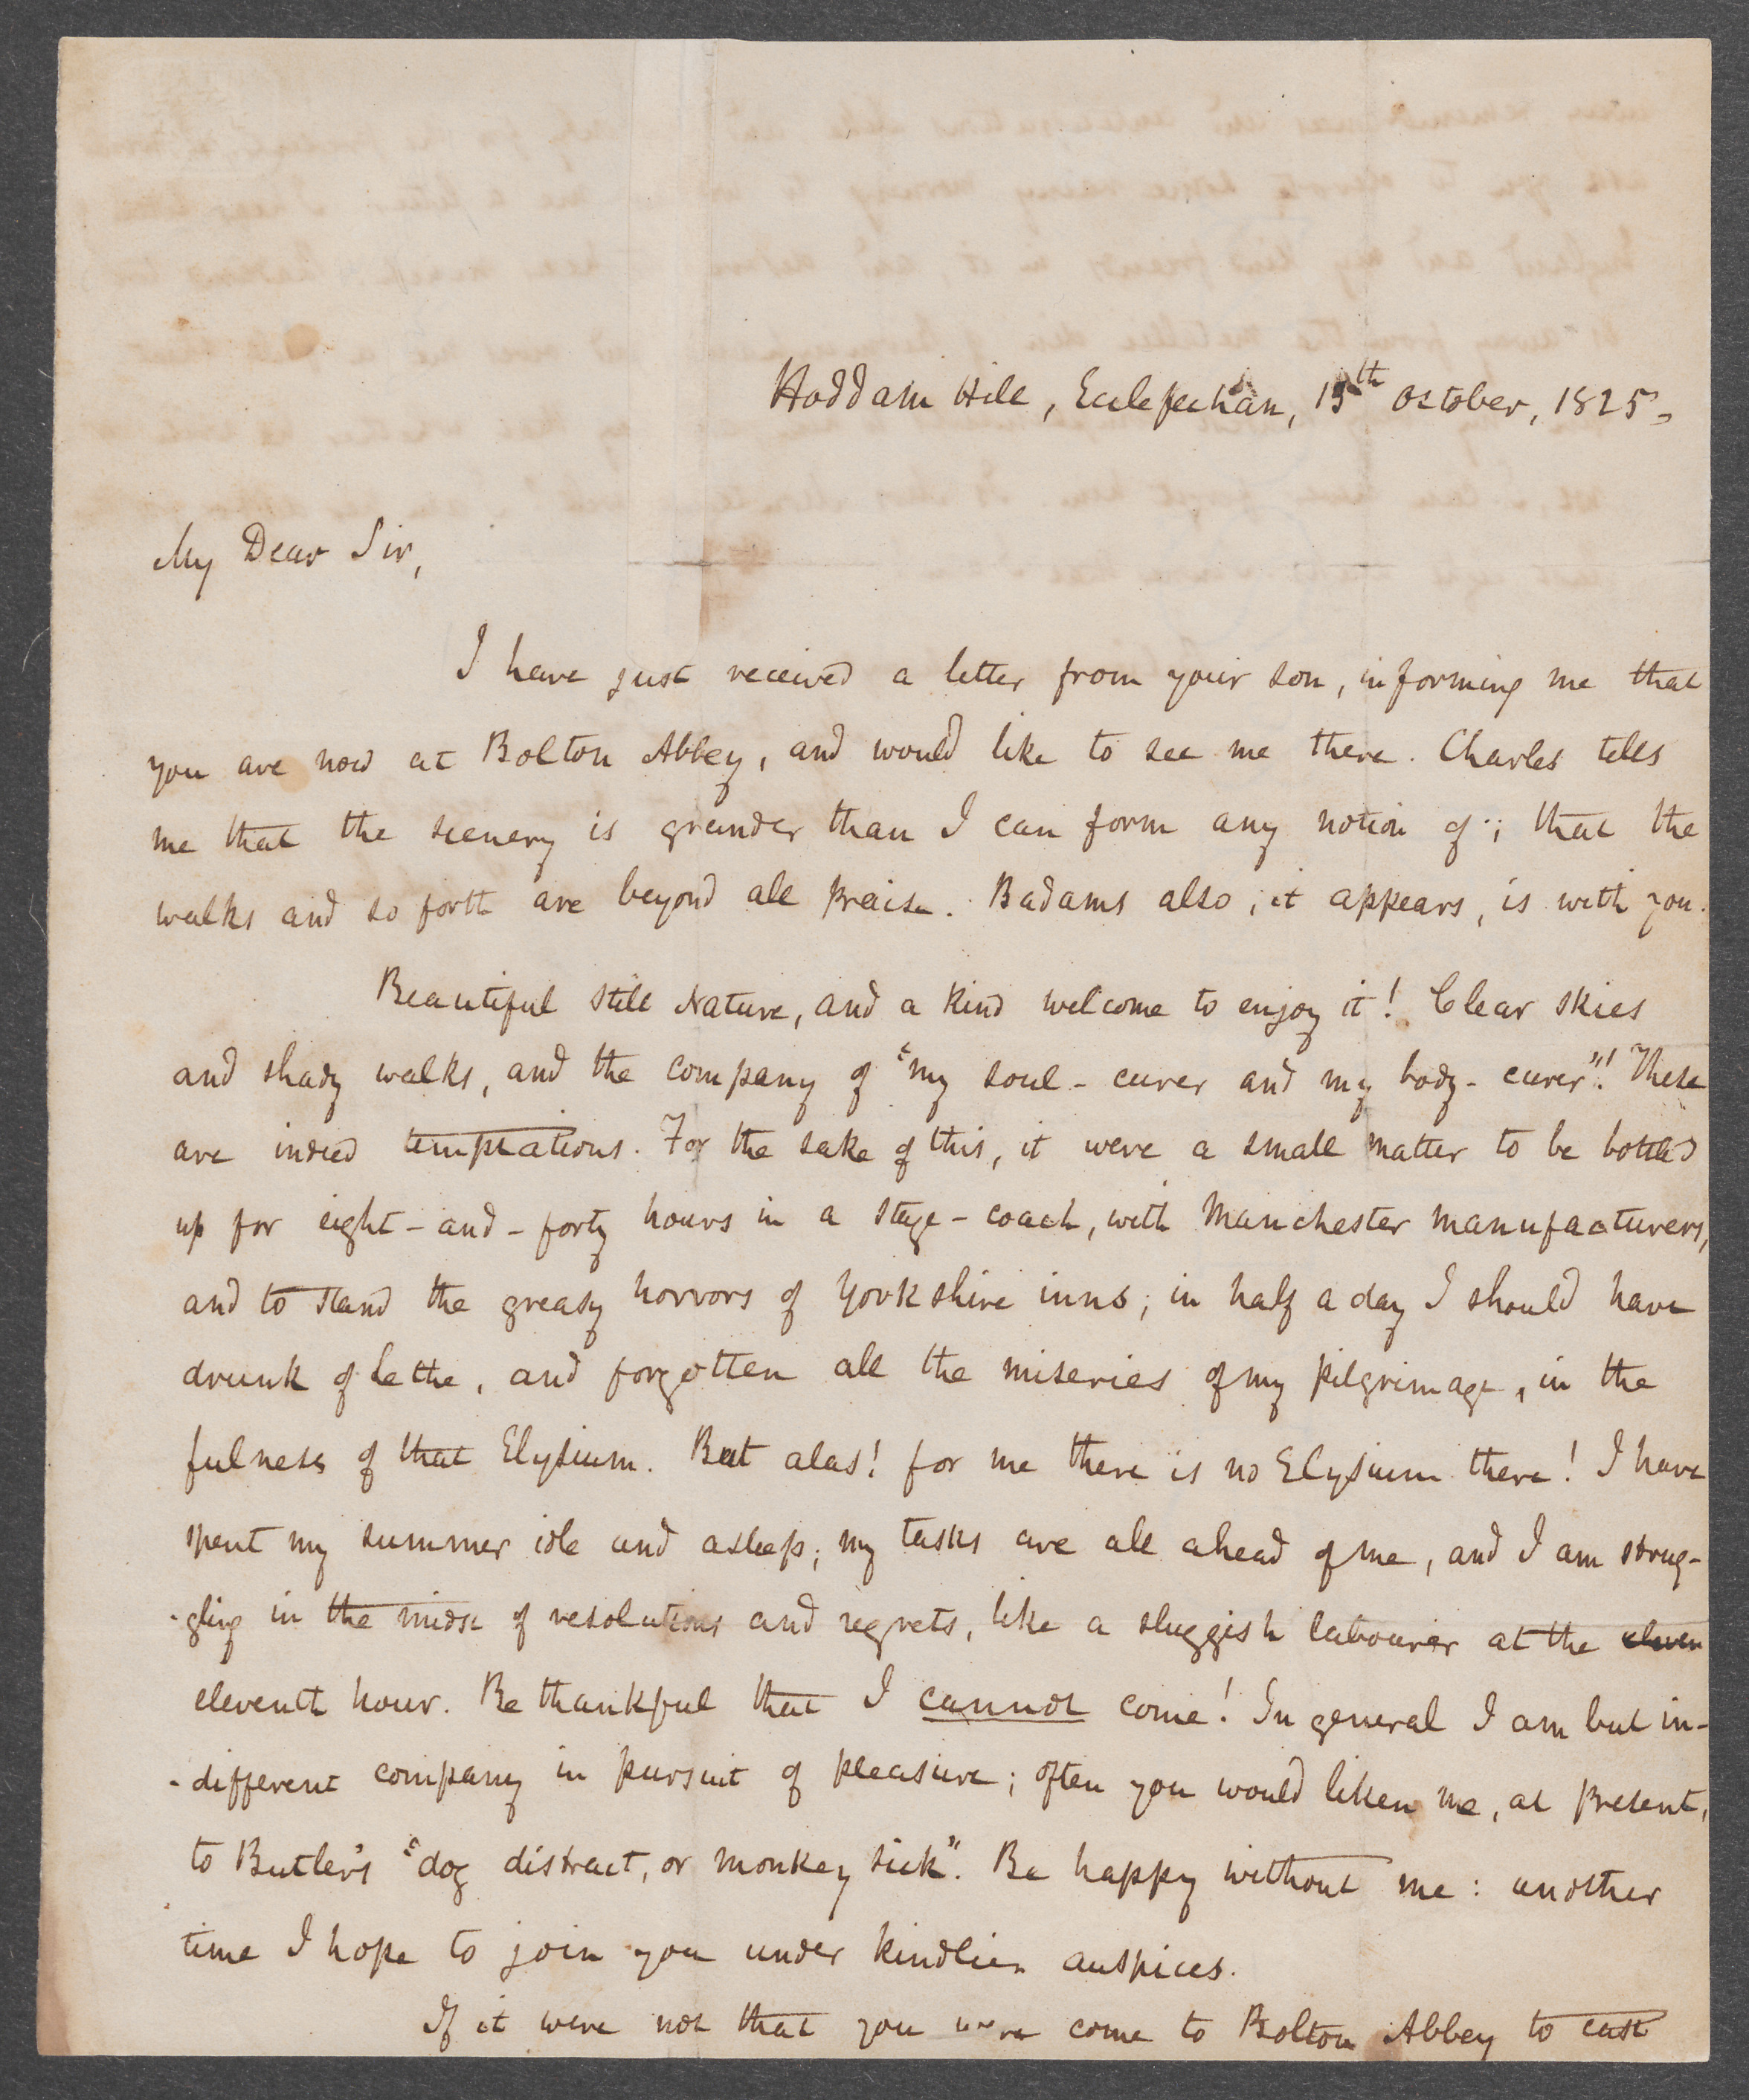 Hoddam Hill, Ecclefechan, 15th October, 1825.
My Dear Sir,
I have just received a letter from your son, informing me that
you are now at Bolton Abbey, and would like to see me there. Charles tells
me that the scenery is grander than I can form any notion of; that the
walks and so forth are beyond all praise. Badams also, it appears, is with you.
Beautiful still Nature, and a kind welcome to enjoy it! Clear skies
and shady walks, and the company of "my soul-curer and my body-curer"! These
are indeed temptations. For the sake of this, it were a small matter to be bottled
up for eight-and-forty hours in a stage-coach, with Manchester manufacturers,
and to stand the greasy horrors of Yorkshire inns; in half a day I should have
drunk of Lethe, and forgotten all the miseries of my pilgrimage, in the
fulness of that Elysium. But alas! for me there is no Elysium there! I have
spent my summer idle and asleep; my tasks are all ahead of me, and I am strug-
-gling in the midst of resolutions and regrets, like a sluggish labourer at the eleven
eleventh hour. Be thankful that I cannot come! In general I am but in-
-different company in pursuit of pleasure; often you would liken me, at present,
to Butler's "dog distract, or monkey sick". Be happy without me: another
time I hope to join you under kindlier auspices.
If it were not that you were come to Bolton Abbey to cast